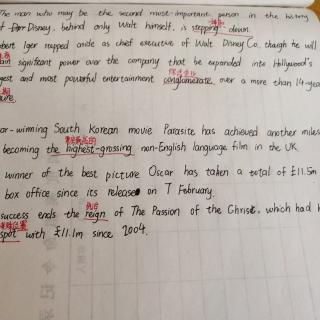 The man who may be the second most-important person in the history
of Disney, behind only Walt himself, is stepping down.
bert Iger stepped aside as chief executive of Walt Disney Co. though he will
significant power over the company that be expanded into Hollywood's
gest and most powerful entertainment conglomerate over a more than 14-year
ure.
ar-winning South Korean movie Parasite has achieved another miles
票房最高的
becoming the highest-grossing non-English language film in the UK
winner of the best picture Oscar has taken a total of £11.5m
box office since its released on 7 February.
统治
success ends the reign of The Passion of the Christ, which had h
spot with £11.1m since 2004.